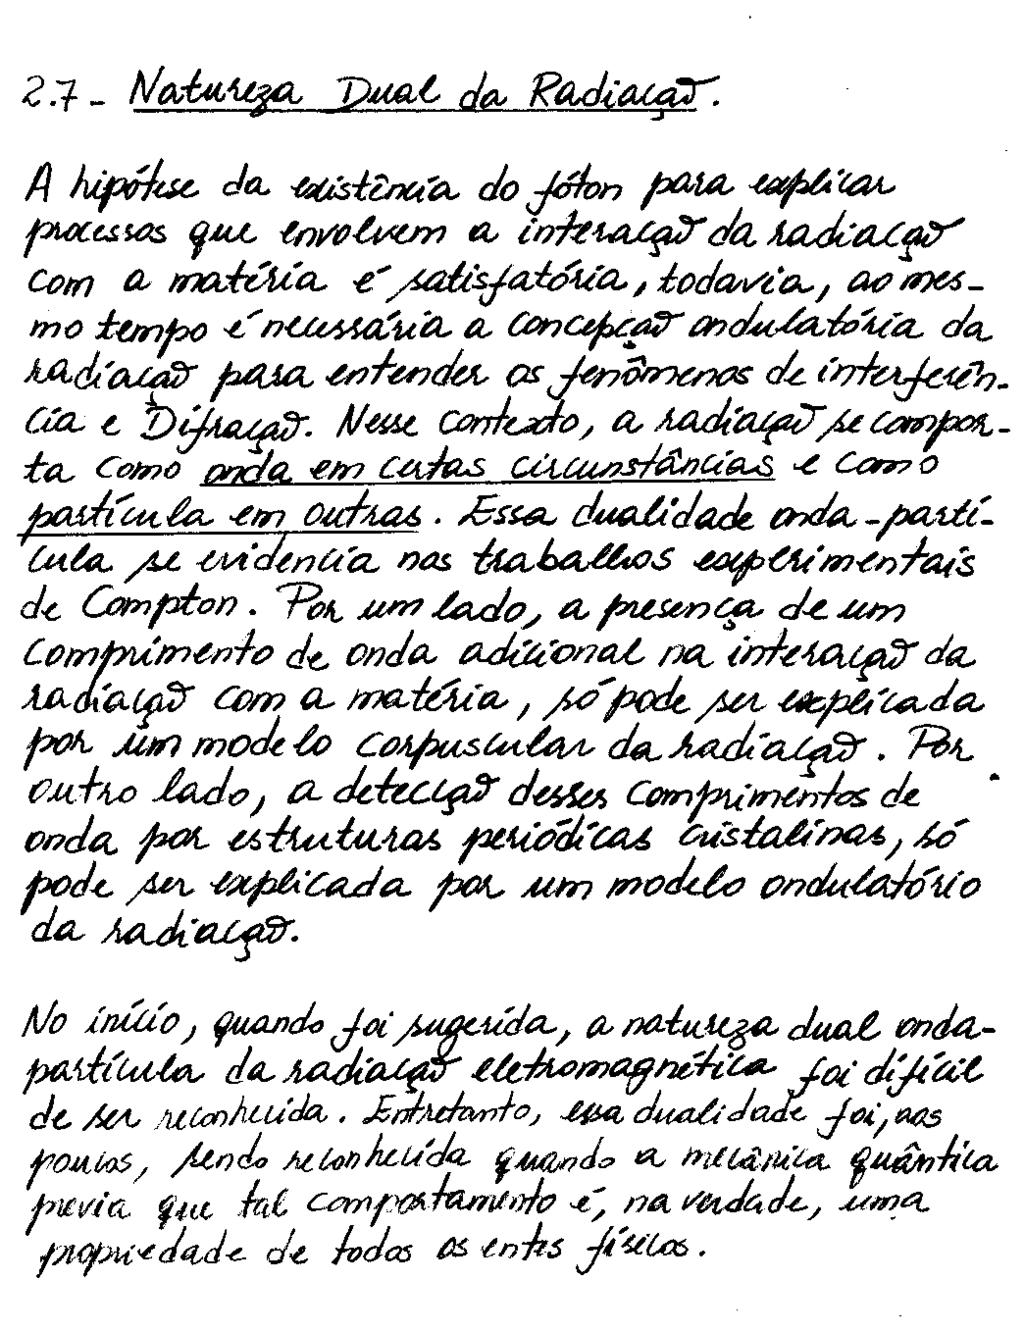 2.7- Natureza Dual da Radiação.
A hipótese da existência do fóton para explicar
processos que envolvem a interação da radiação
com a matéria é satisfatória, todavia, ao mes-
mo tempo é necessária a concepção ondulatória da
radiação para entender os fenômenos de interferên-
cia e Difração. Nesse contexto, a radiação se compor-
ta como onda em certas circunstâncias e como
partícula em outras. Essa dualidade onda-partí-
cula se evidencia nos trabalhos experimentais
de Compton. Por um lado, a presença de um
comprimento de onda adicional na interação da
radiação com a matéria, só pode ser explicada
por um modelo corpuscular da radiação. Por
outro lado, a detecção desses comprimentos de
onda por estruturas periódicas cristalinas, só
pode ser explicada por um modelo ondulatório
da radiação.
No início, quando foi sugerida, a natureza dual onda-
partícula da radiação eletromagnética foi difícil
de ser reconhecida. Entretanto, essa dualidade foi, aos
poucos, sendo reconhecida quando a mecânica quântica
previa que tal comportamento é, na verdade, uma
propriedade de todos os entes físicos.